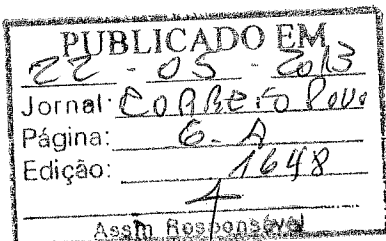 PUBLICADO EM
22 - 05 - 2013
Jornal: CORREIO POVO
Página: 6-A
Edição: 1648
Assin Responsável